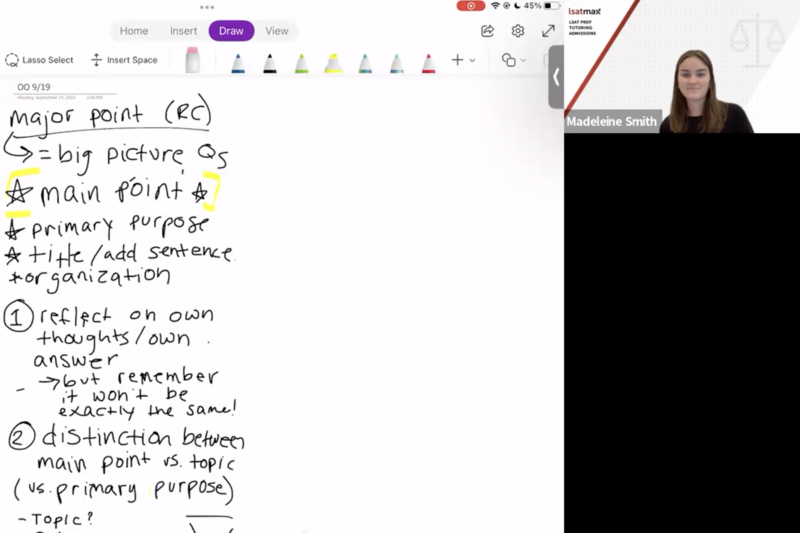 45%
Home Insert Draw View
Lasso Select Insert Space
OO 9/19
major point (RC)
= big picture Qs
main point
primary purpose
title/add sentence
organization
1 reflect on own
thoughts/own
answer
→ but remember
it won't be
exactly the same!
2 distinction between
main point vs. topic
(vs. primary purpose)
- Topic?
lsatmax
LSAT PREP
TUTORING
ADMISSIONS
Madeleine Smith